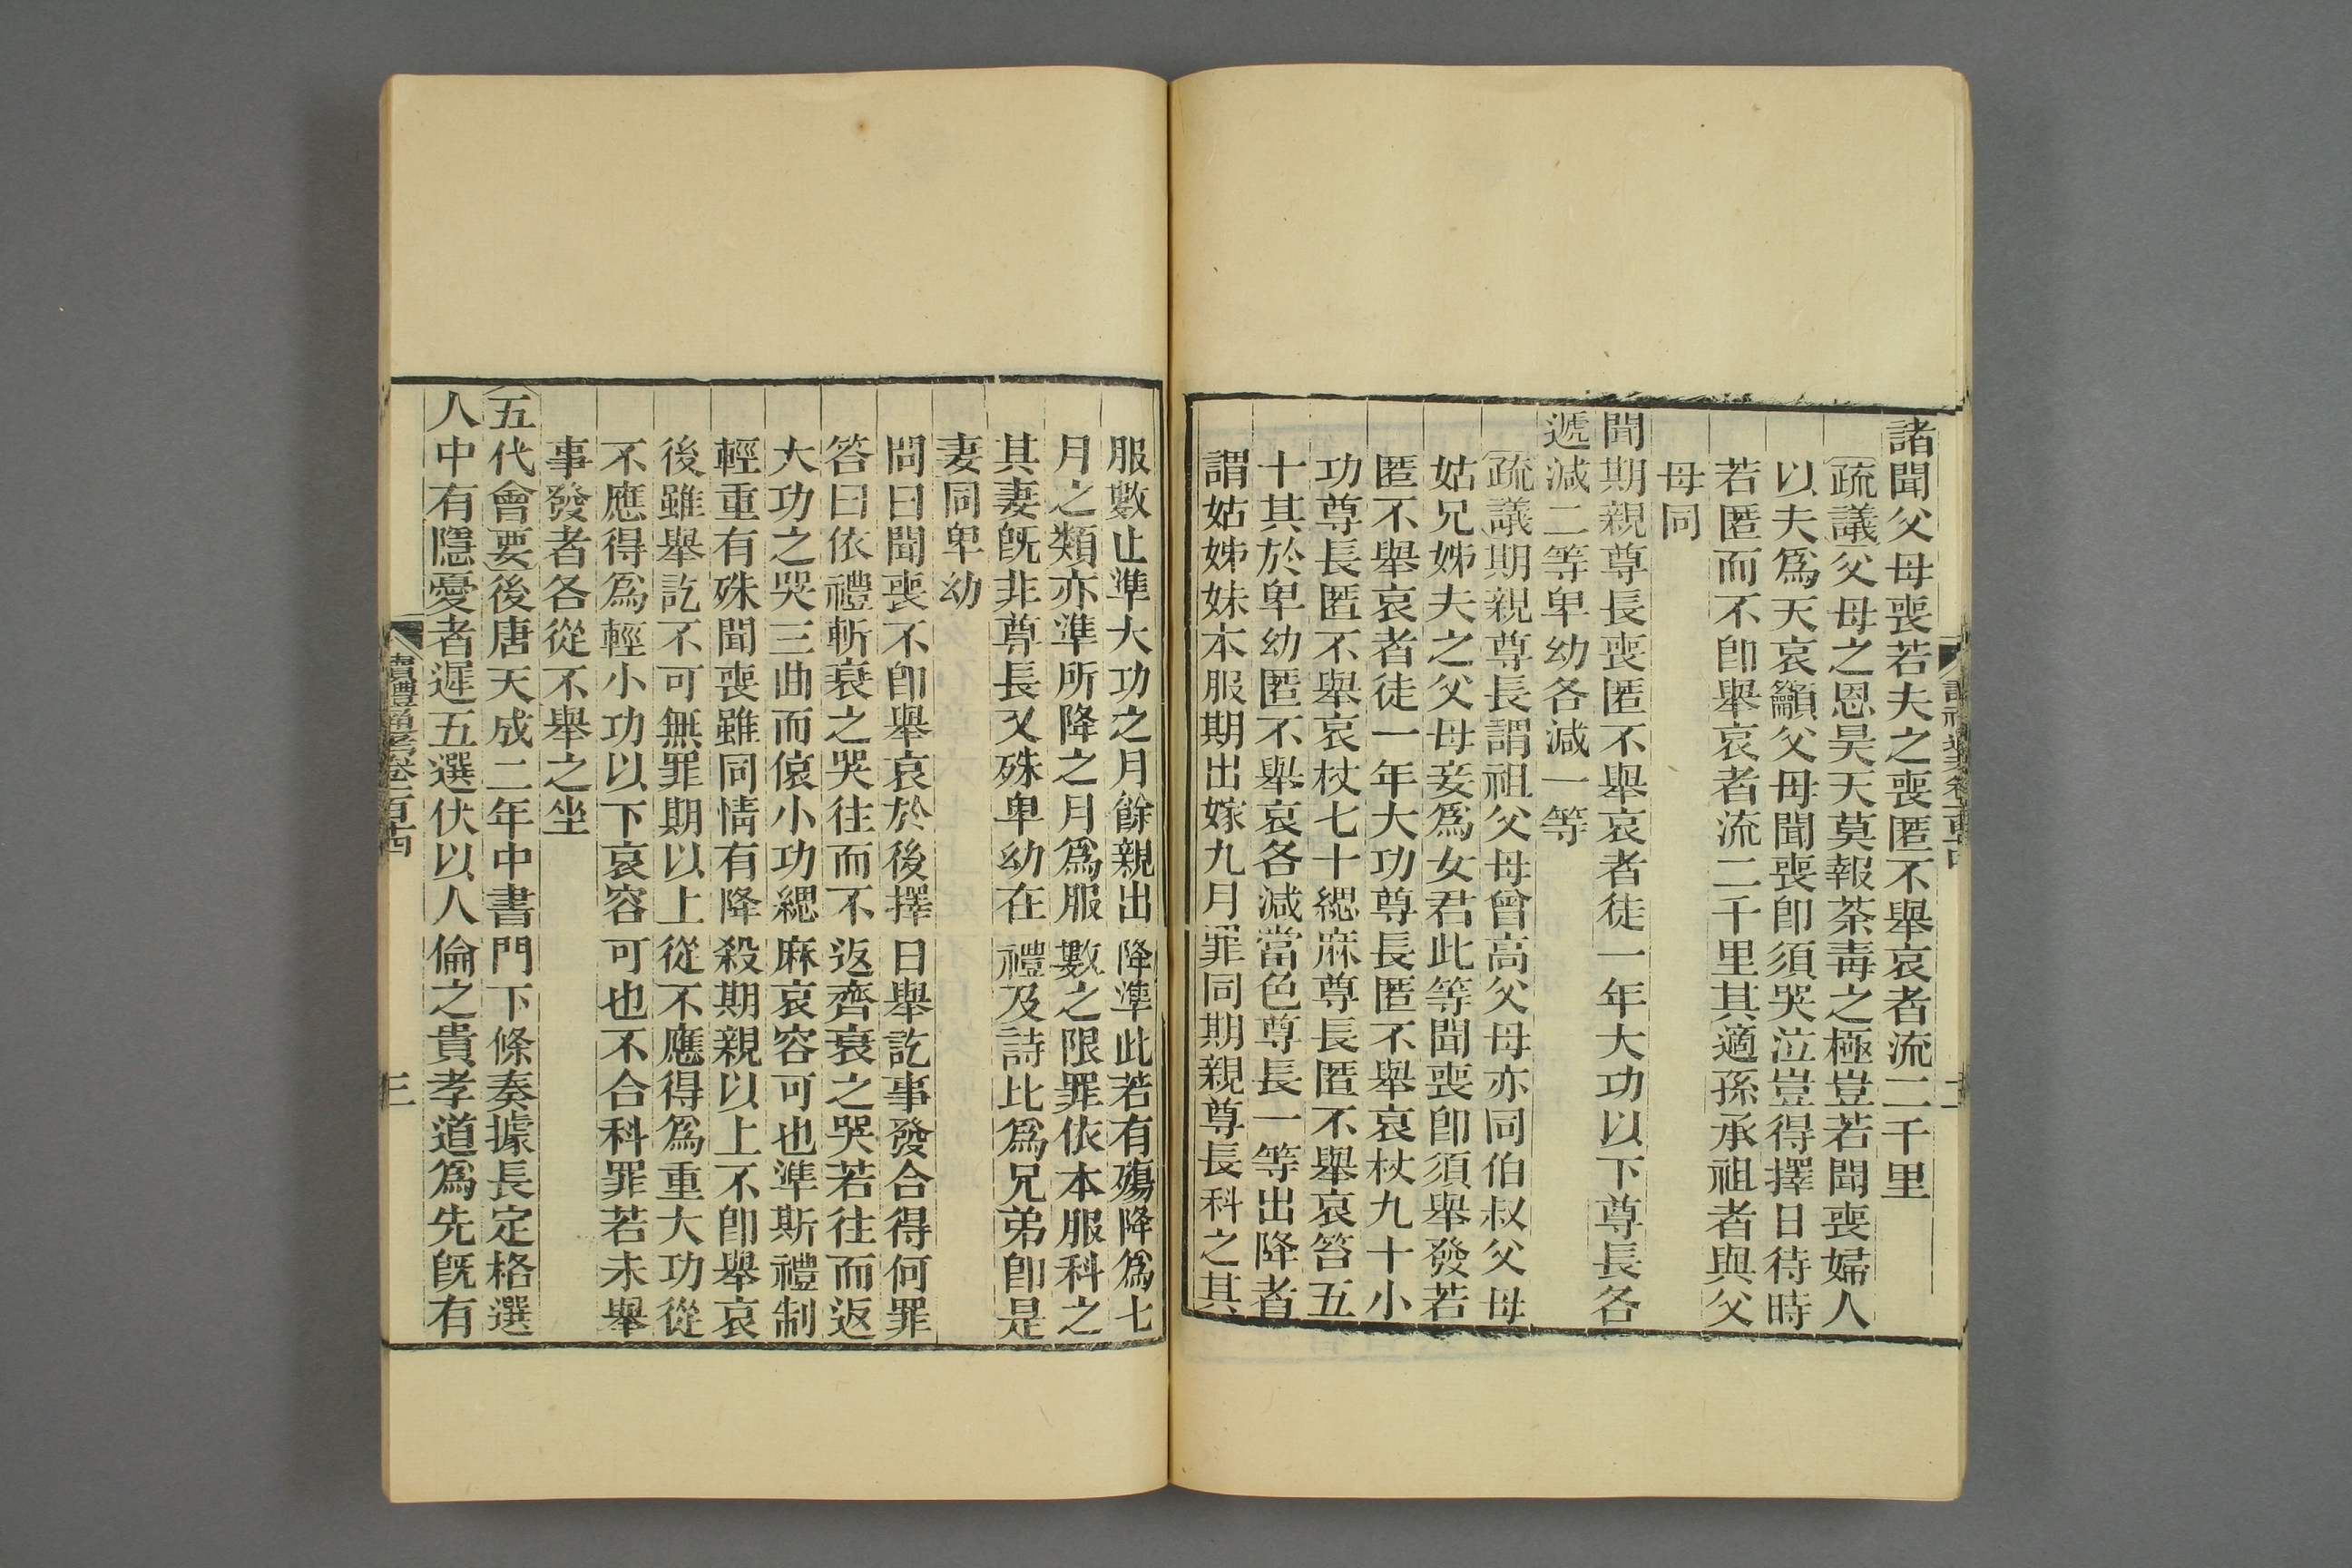 諸聞父母喪若夫之喪匿不舉哀者流二千里
疏議父母之恩昊天莫報荼毒之極豈若聞喪婦人
以夫爲天哀籲父母聞喪卽須哭泣豈得擇日待時
若匿而不卽舉哀者流二千里其適孫承祖者與父
母同
聞期親尊長喪匿不舉哀者徒一年大功以下尊長各
遞減二等卑幼各減一等
疏議期親尊長謂祖父母曾高父母亦同伯叔父母
姑兄姊夫之父母妾爲女君此等聞喪卽須舉發若
匿不舉哀者徒一年大功尊長匿不舉哀杖九十小
功尊長匿不舉哀杖七十緦麻尊長匿不舉哀笞五
十其於卑幼匿不舉哀各減當色尊長一等出降者
謂姑姊妹本服期出嫁九月罪同期親尊長科之其
服數止準大功之月餘親出降準此若有殤降爲七
月之類亦準所降之月爲服數之限罪依本服科之
其妻旣非尊長又殊卑幼在禮及詩比爲兄弟卽是
妻同卑幼
問曰聞喪不卽舉哀於後擇日舉訖事發合得何罪
答曰依禮斬衰之哭往而不返齊衰之哭若往而返
大功之哭三曲而偯小功緦麻哀容可也準斯禮制
輕重有殊聞喪雖同情有降殺期親以上不卽舉哀
後雖舉訖不可無罪期以上從不應得爲重大功從
不應得爲輕小功以下哀容可也不合科罪若未舉
事發者各從不舉之坐
五代會要後唐天成二年中書門下條奏據長定格選
人中有隱憂者遲五選伏以人倫之貴孝道爲先旣有
讀禮通考卷一百十四
三